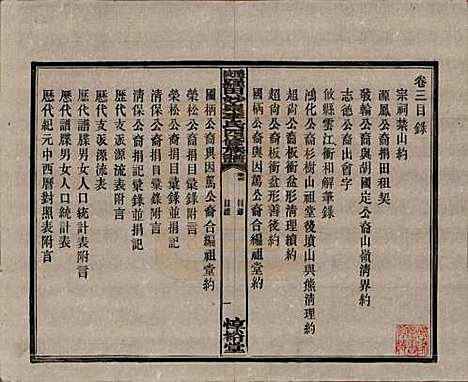 卷三目錄
宗祠葉山約
源鳳公裔捐田租契
發輪公裔與胡國定公裔山嶺清界約
志德公裔出會字
攸縣雲江衝和解華錄
鴻化公裔杉樹山祖堂後墳山與熊清理約
超尚公裔板衝盆形清理續約
超尚公裔板衝盆形善後約
國柄公裔與因萬公裔合編祖堂約
目錄
一
惇敍堂
國柄公裔與因萬公裔合編祖堂約
榮松公裔捐目彙錄並捐記
榮松公裔捐目彙錄附言
清保公裔捐目彙錄並捐記
歷代支派源流表
歷代支派源流表附言
歷代譜牒男女人口統計表
歷代譜牒男女人口統計表附言
歷代紀元中西曆對照表附言